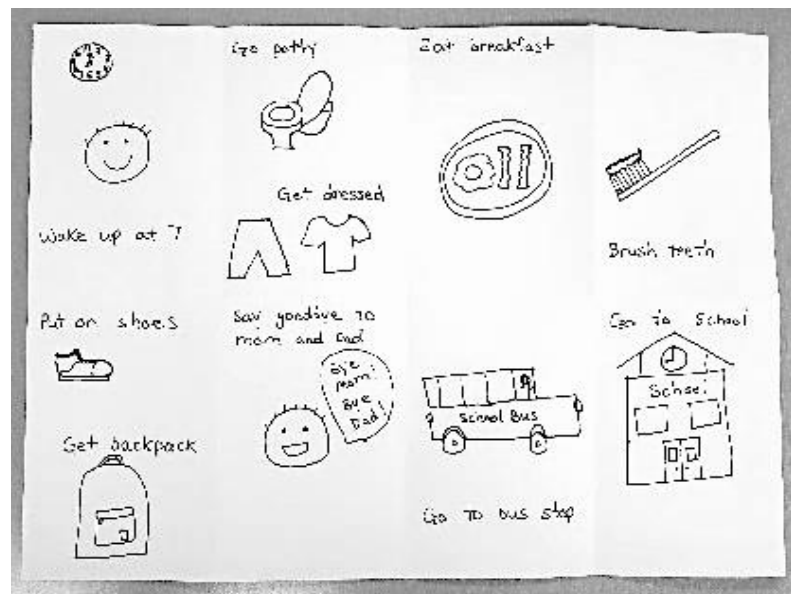 Wake up at 7
Go potty
Get dressed
Eat breakfast
Brush teeth
Put on shoes
Get backpack
Say goodbye to
mom and Dad
Bye
mom!
Bye
Dad!
School Bus
Go to bus stop
Go to School
School